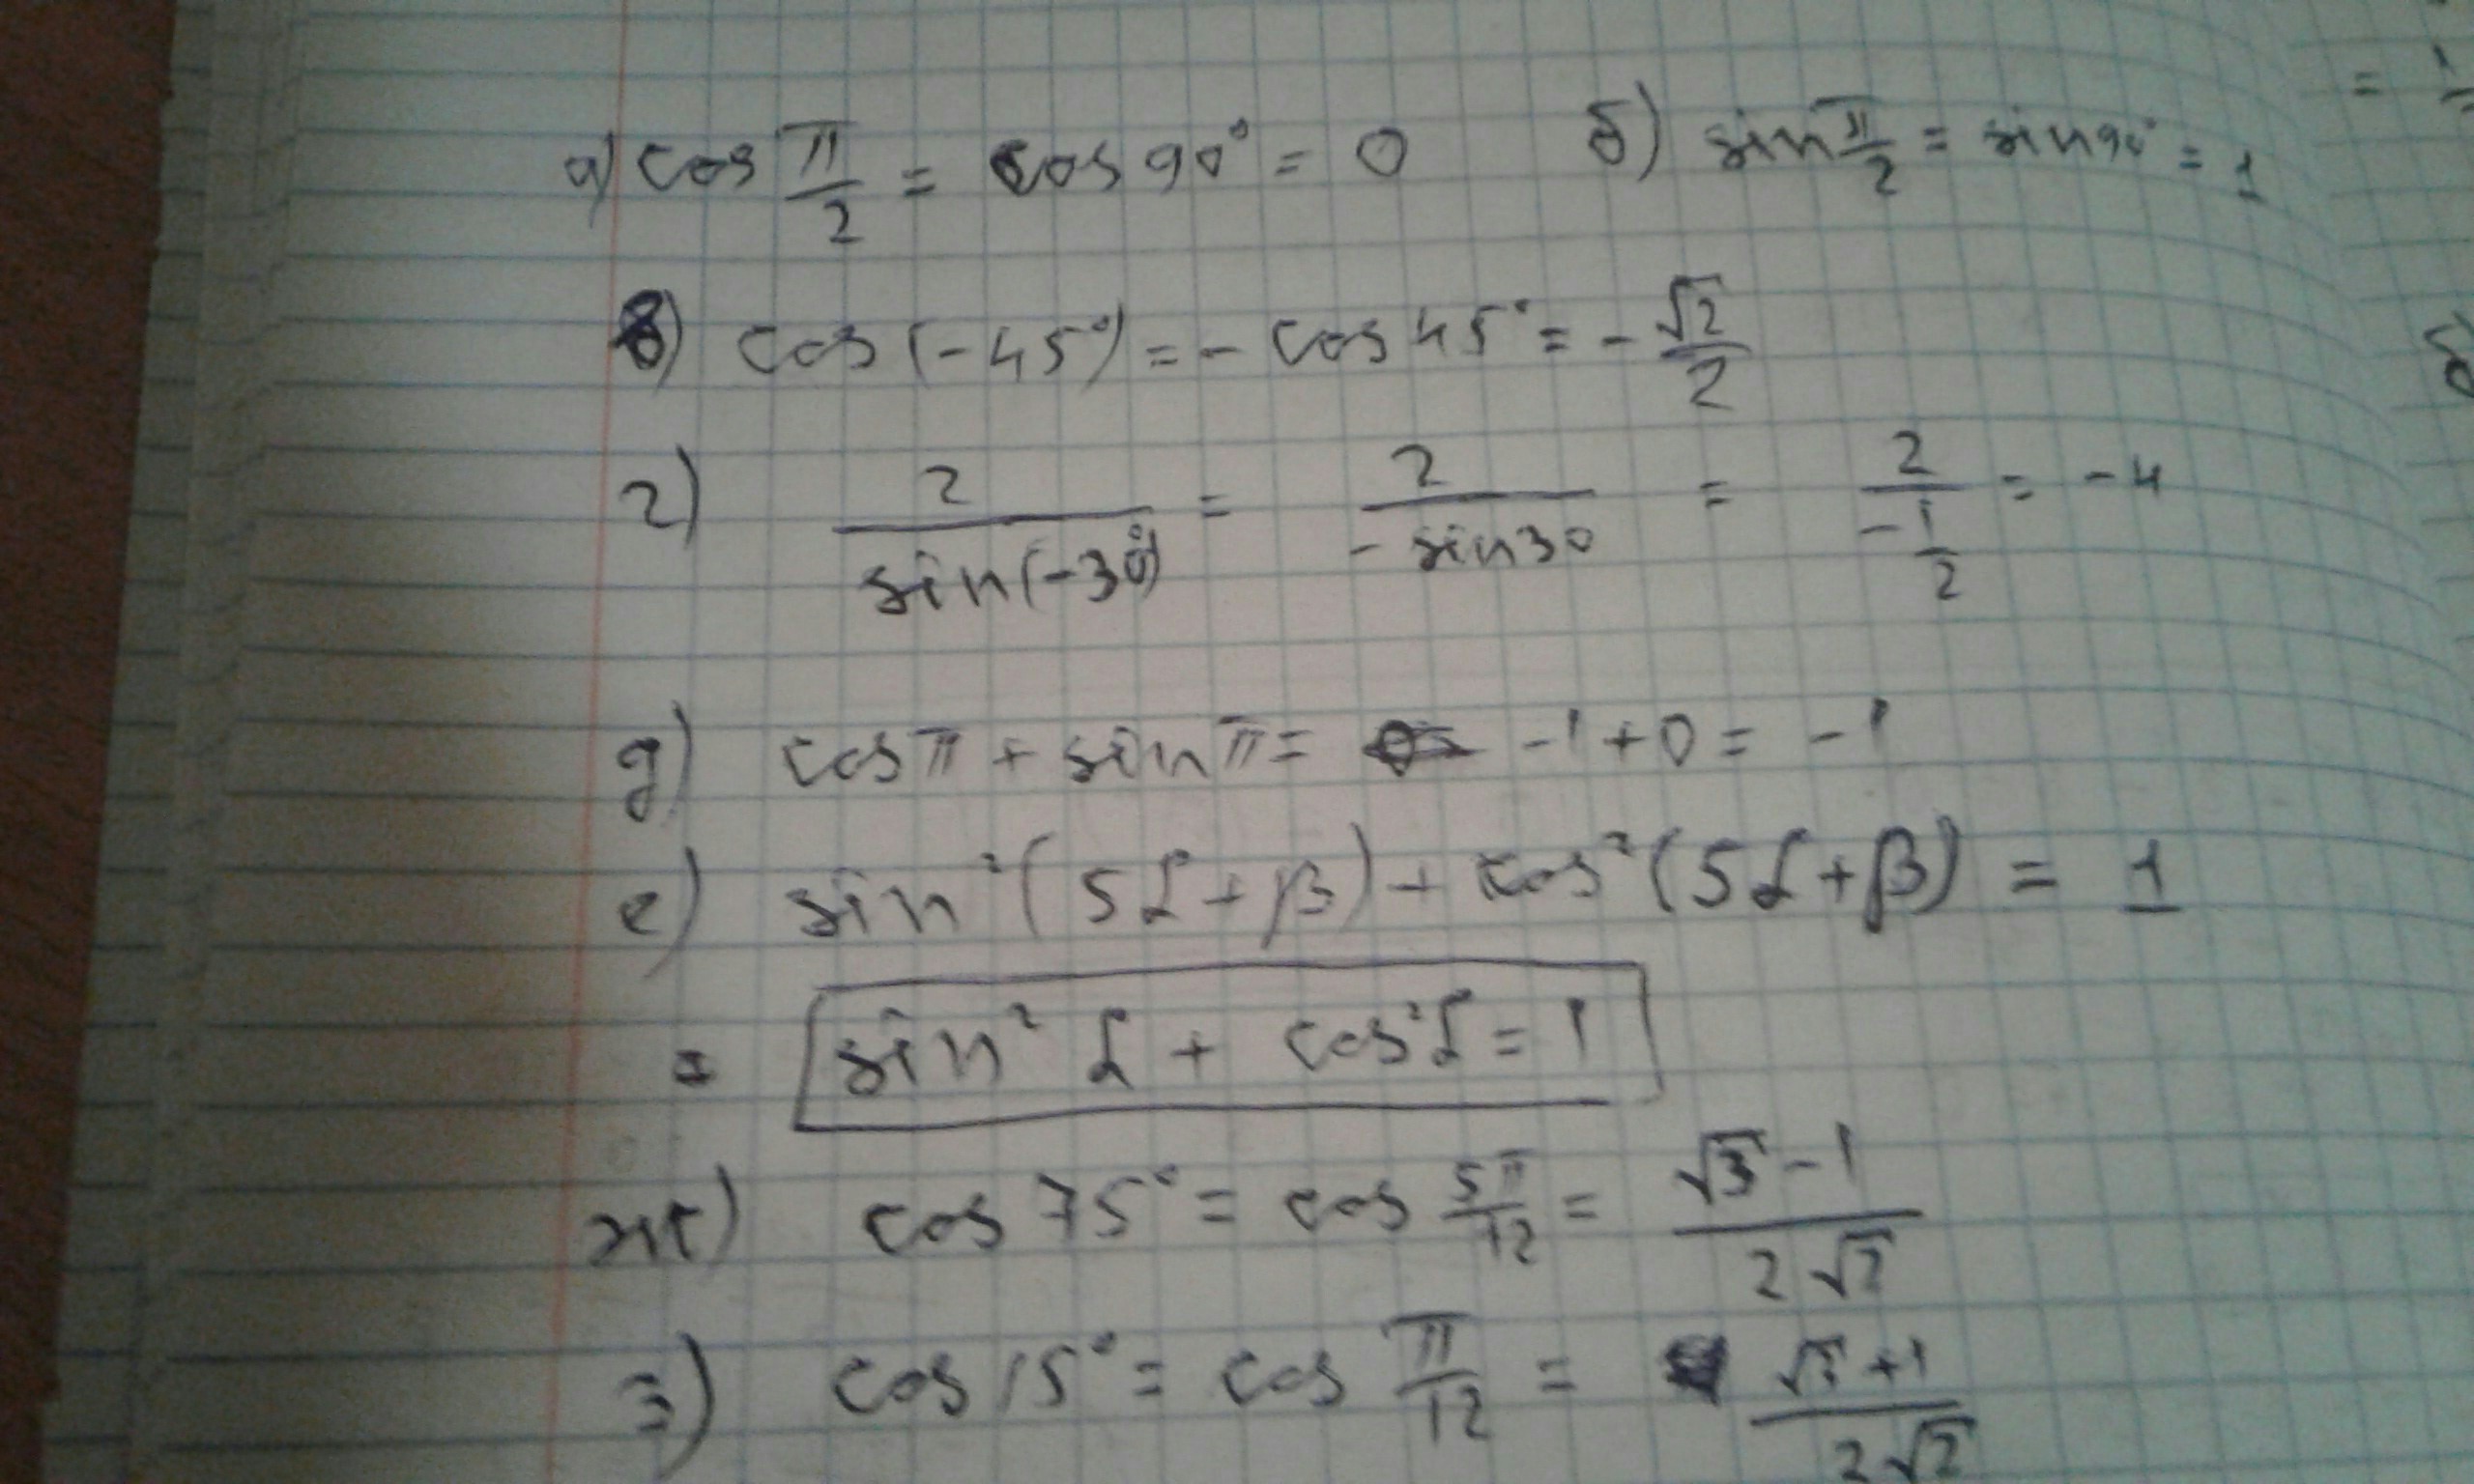 а) cos π/2 = cos 90° = 0 б) sin π/2 = sin 90° = 1
в) cos (-45°) = - cos 45° = - √2/2
г) 2/sin(-30°) = 2/-sin30 = 2/-1/2 = -4
д) cos π + sin π = -1 + 0 = -1
е) sin²(5α + β) + cos²(5α + β) = 1
= sin² α + cos² α = 1
ж) cos 75° = cos 5π/12 = √3 - 1/2√2
з) cos 15° = cos π/12 = √3 + 1/2√2
б)